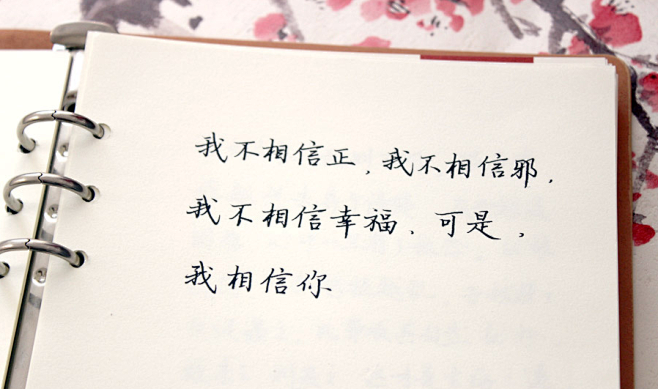 我不相信正,我不相信邪,
我不相信幸福、可是,
我相信你